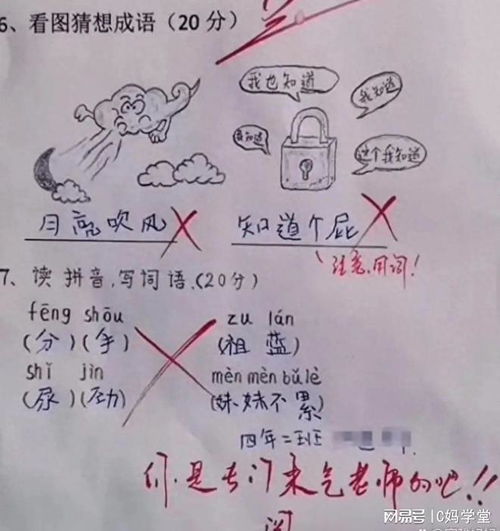 6、看图猜想成语（20分）
我也知道
我知道
这个我知道
月亮吹风 知道个屁
注意用词!
7、读拼音,写词语.(20分)
fēng shōu zu lán
(分)(手) (祖 蓝)
shǐ jìn mèn mèn bǔ lè
(尿)(劲) (妹妹不累)
四年二班
们是专门来气老师的吧!!
网易号|C妈学堂